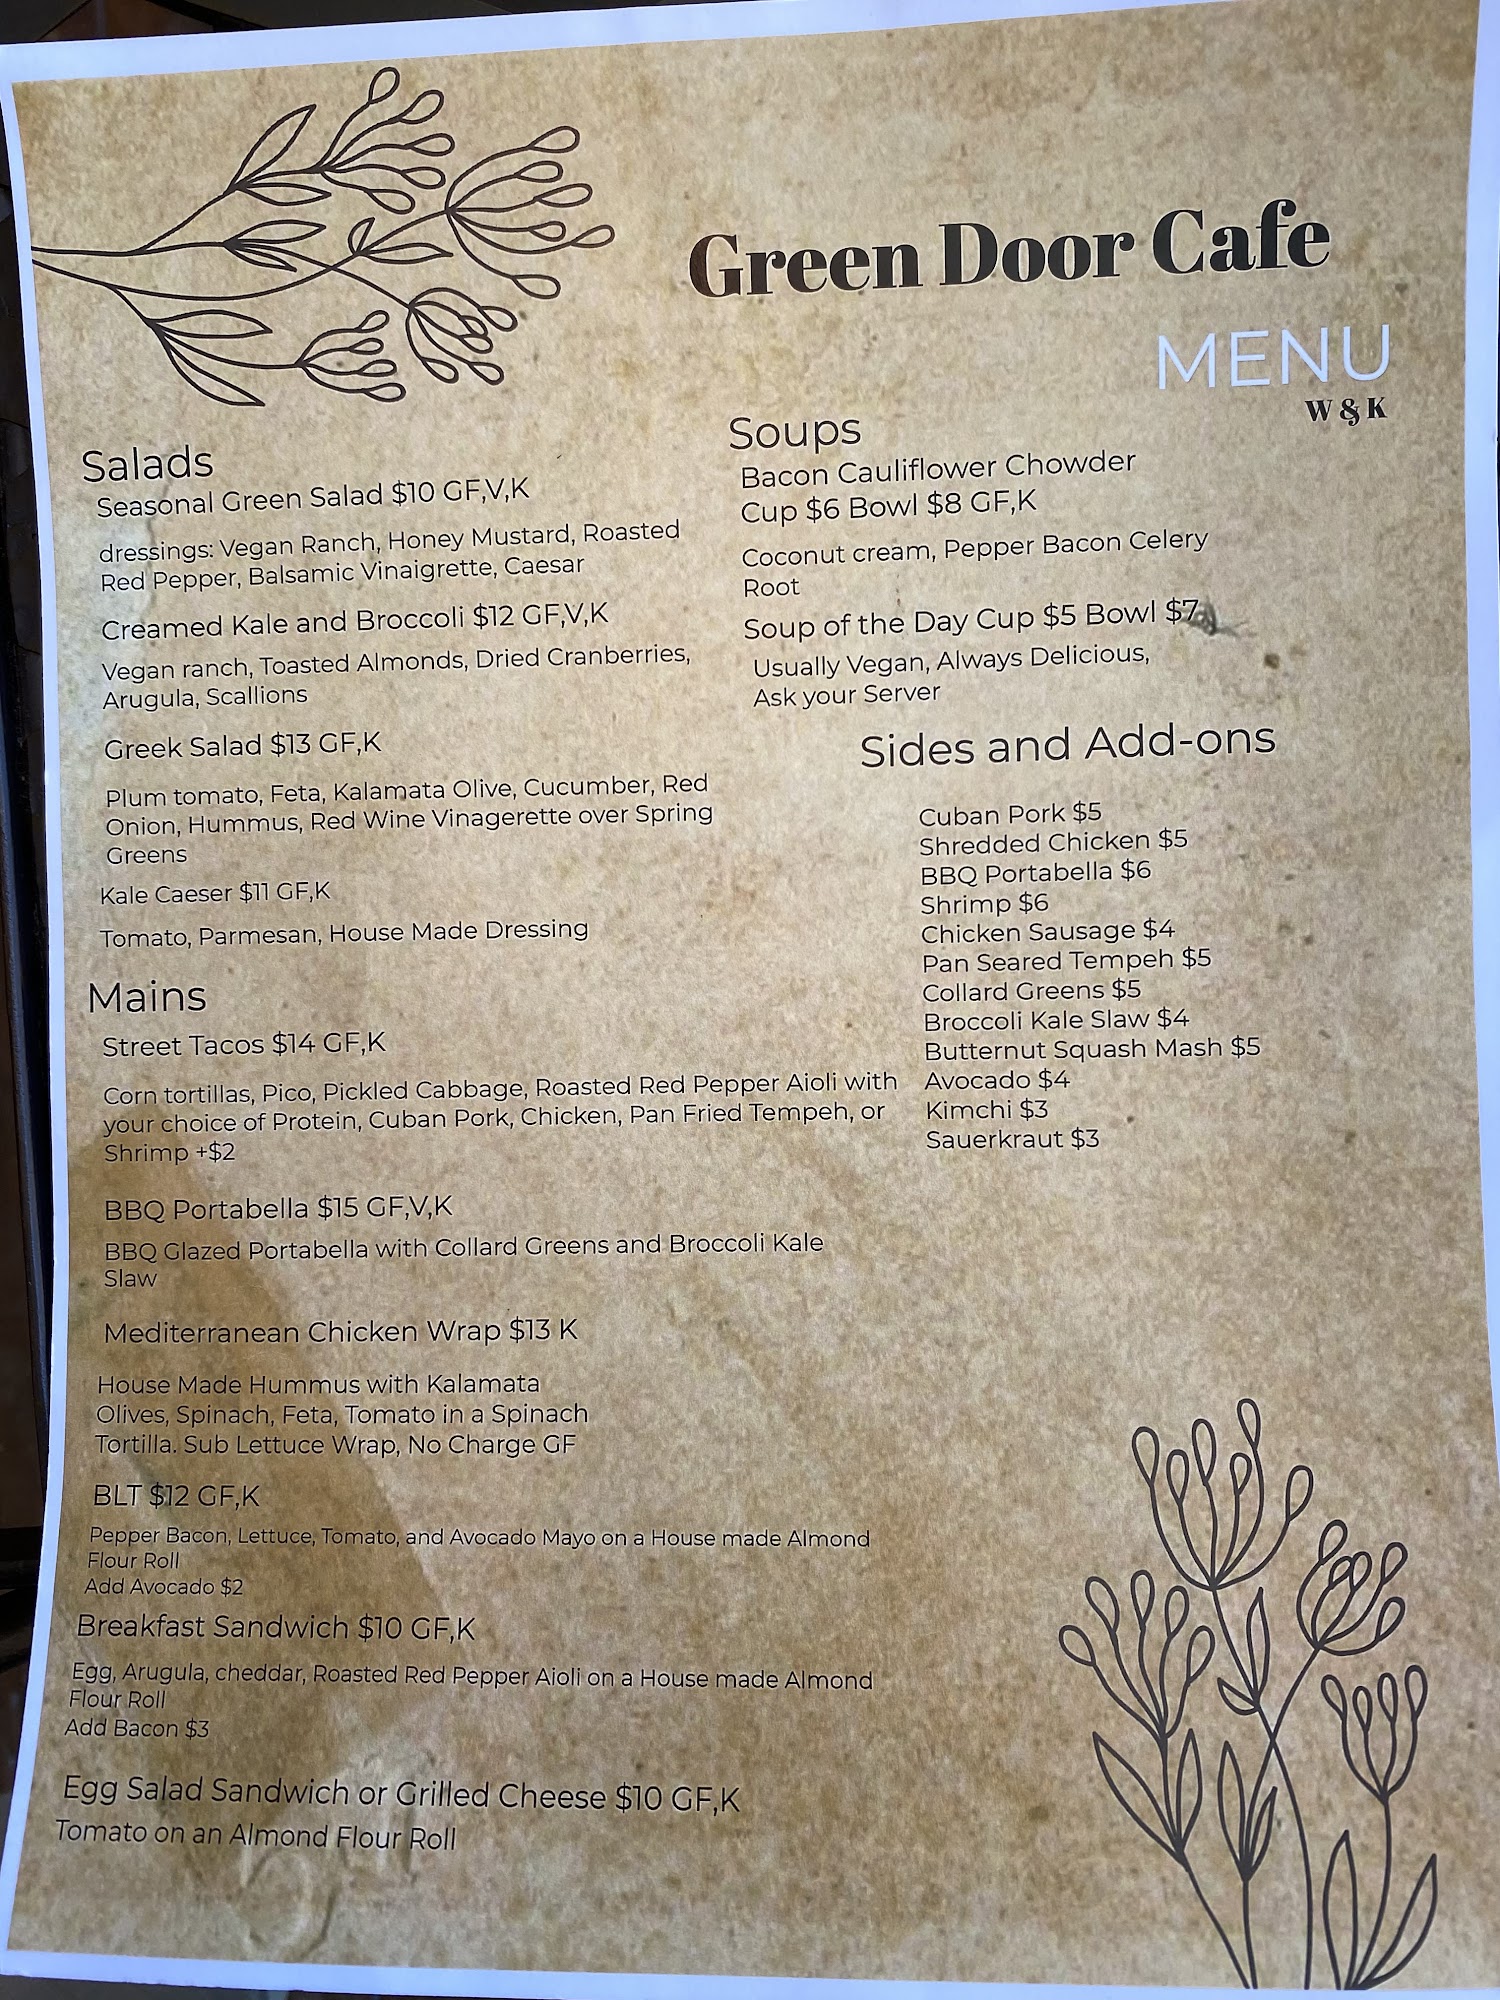 Green Door Cafe
MENU
W & K
Salads
Seasonal Green Salad $10 GF,V,K
dressings: Vegan Ranch, Honey Mustard, Roasted
Red Pepper, Balsamic Vinaigrette, Caesar
Creamed Kale and Broccoli $12 GF,V,K
Vegan ranch, Toasted Almonds, Dried Cranberries,
Arugula, Scallions
Greek Salad $13 GF,K
Plum tomato, Feta, Kalamata Olive, Cucumber, Red
Onion, Hummus, Red Wine Vinagerette over Spring
Greens
Kale Caeser $11 GF,K
Tomato, Parmesan, House Made Dressing
Mains
Street Tacos $14 GF,K
Corn tortillas, Pico, Pickled Cabbage, Roasted Red Pepper Aioli with
your choice of Protein, Cuban Pork, Chicken, Pan Fried Tempeh, or
Shrimp +$2
BBQ Portabella $15 GF,V,K
BBQ Glazed Portabella with Collard Greens and Broccoli Kale
Slaw
Mediterranean Chicken Wrap $13 K
House Made Hummus with Kalamata
Olives, Spinach, Feta, Tomato in a Spinach
Tortilla. Sub Lettuce Wrap, No Charge GF
BLT $12 GF,K
Pepper Bacon, Lettuce, Tomato, and Avocado Mayo on a House made Almond
Flour Roll
Add Avocado $2
Breakfast Sandwich $10 GF,K
Egg, Arugula, cheddar, Roasted Red Pepper Aioli on a House made Almond
Flour Roll
Add Bacon $3
Egg Salad Sandwich or Grilled Cheese $10 GF,K
Tomato on an Almond Flour Roll
Soups
Bacon Cauliflower Chowder
Cup $6 Bowl $8 GF,K
Coconut cream, Pepper Bacon Celery
Root
Soup of the Day Cup $5 Bowl $7
Usually Vegan, Always Delicious,
Ask your Server
Sides and Add-ons
Cuban Pork $5
Shredded Chicken $5
BBQ Portabella $6
Shrimp $6
Chicken Sausage $4
Pan Seared Tempeh $5
Collard Greens $5
Broccoli Kale Slaw $4
Butternut Squash Mash $5
Avocado $4
Kimchi $3
Sauerkraut $3